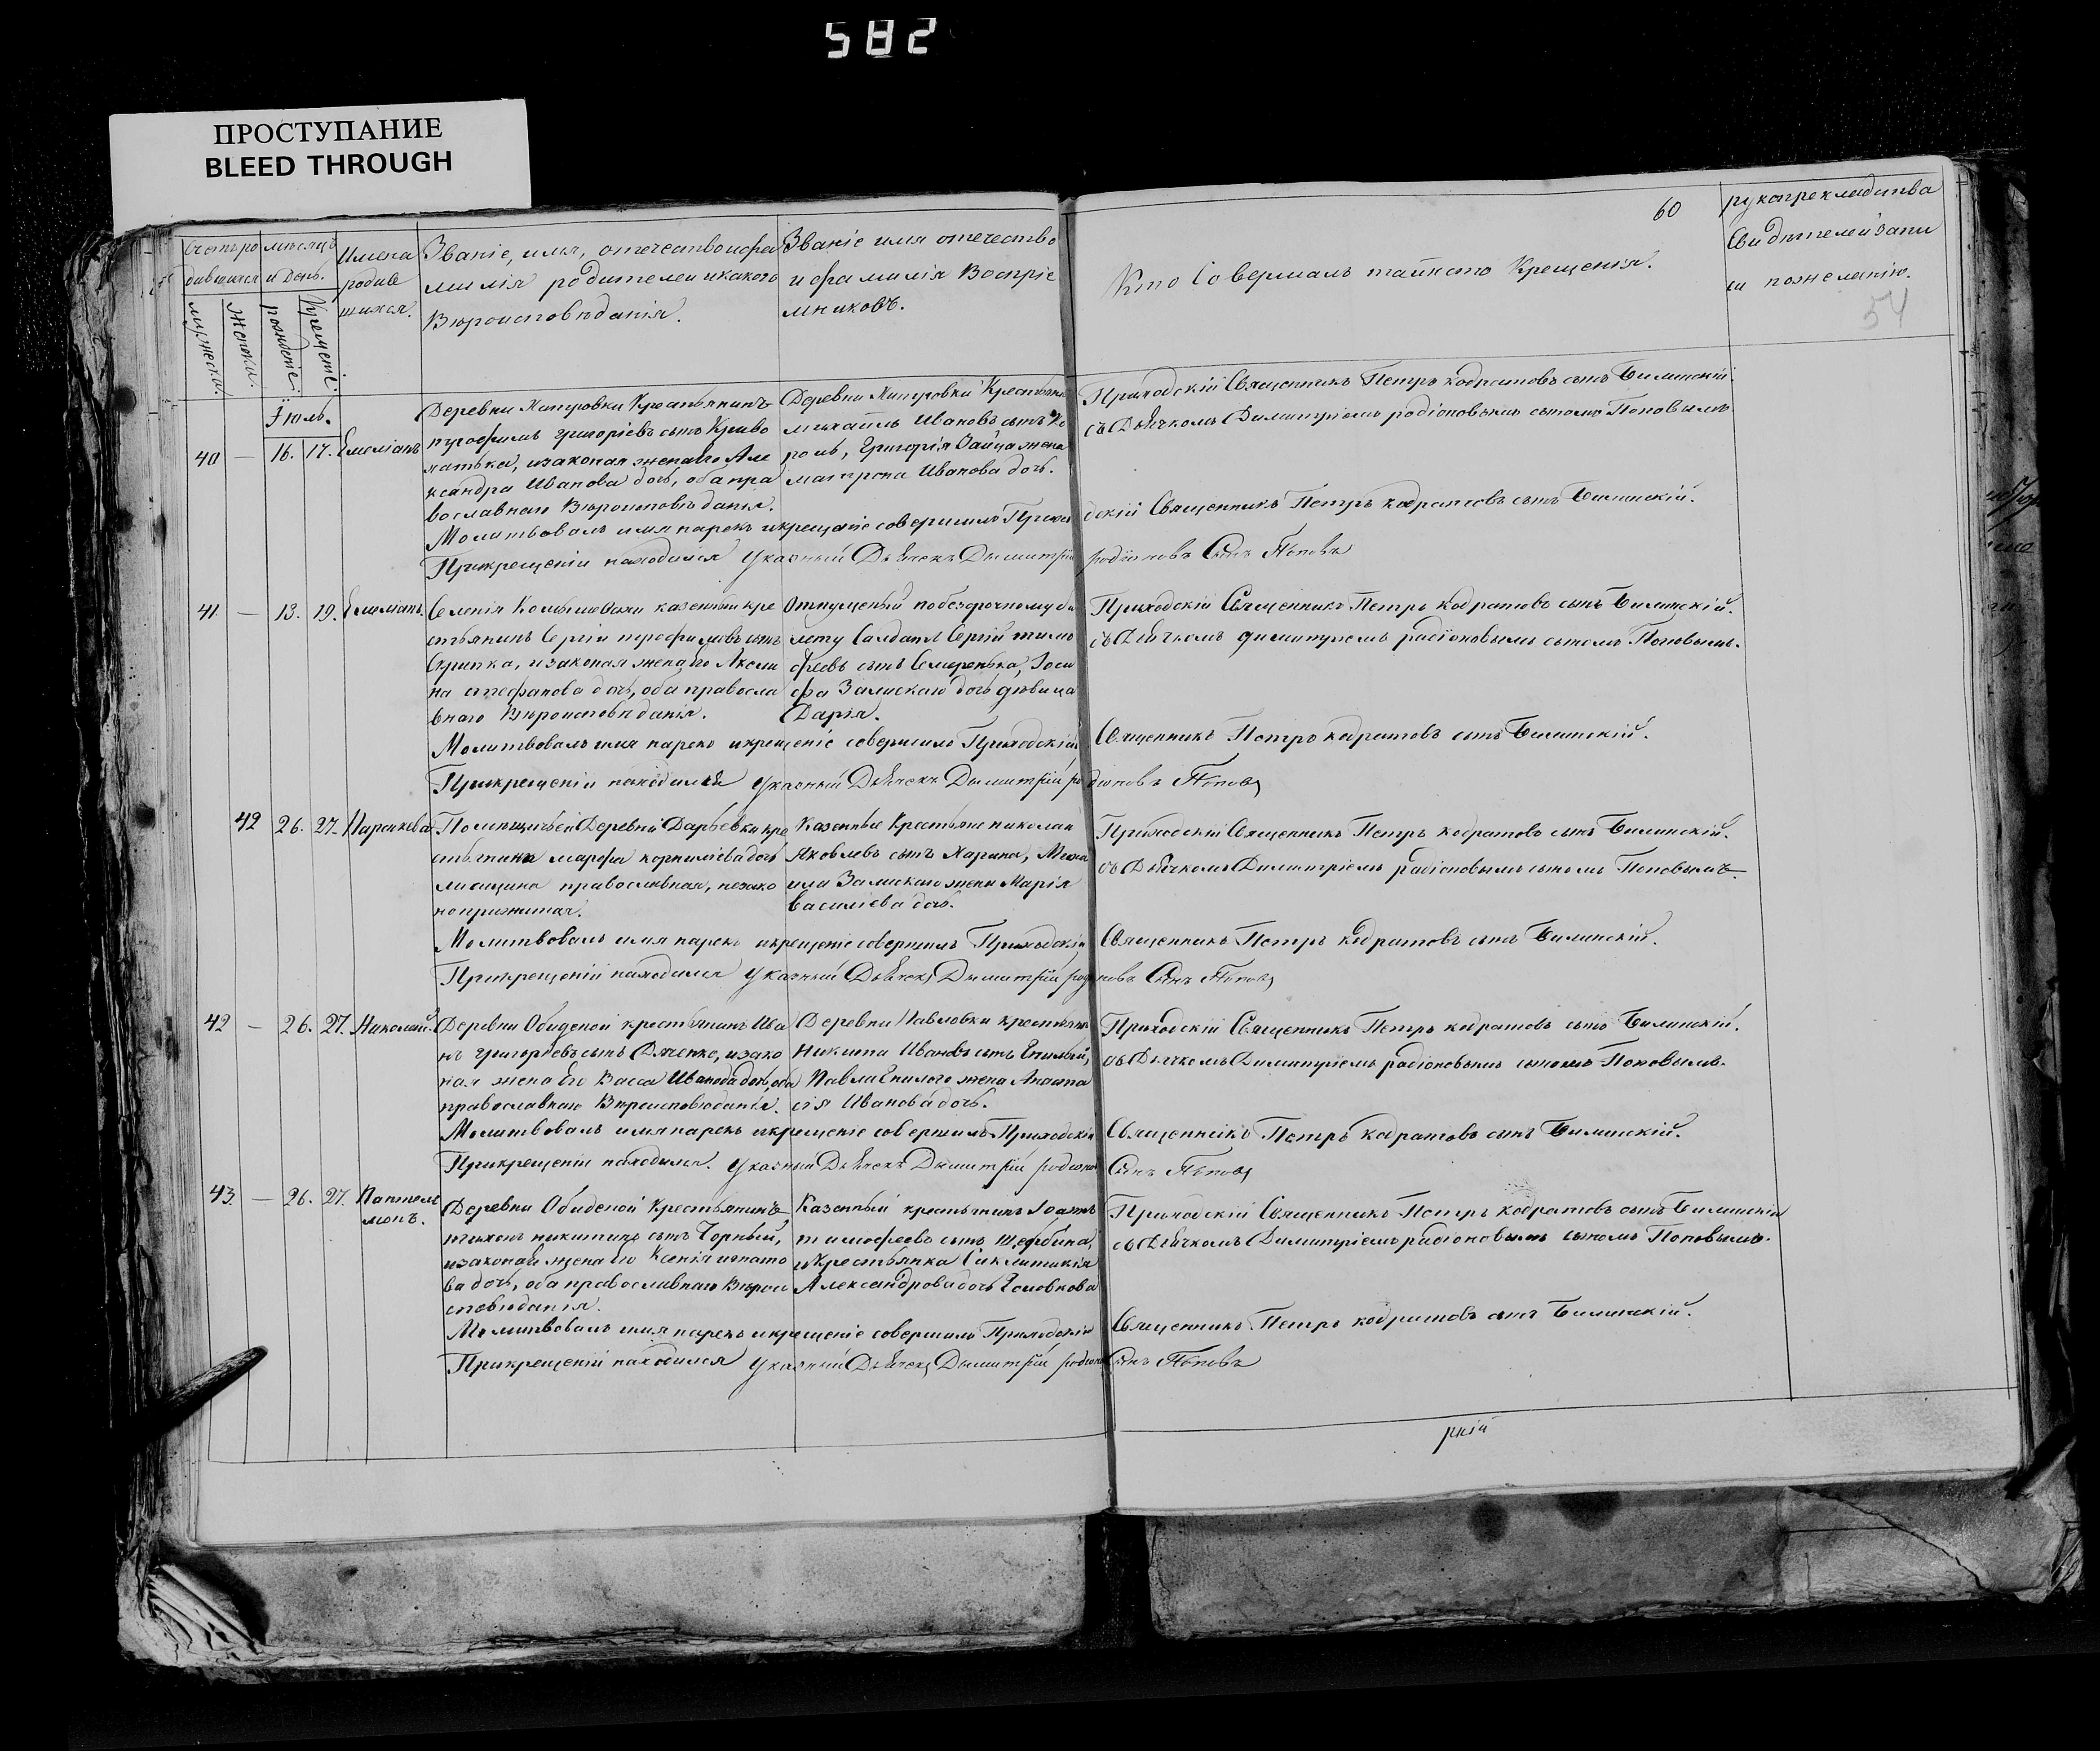 582
ПРОСТУПАНИЕ
BLEED THROUGH
60
54
Счетъ родившихся
мѣсяцъ и день.
мужеска.
женска.
рожденіе.
Крещеніе.
Имена родившихся.
Званіе, имя, отечество и фа
милія родителей и какого
Вѣроисповѣданія.
Званіе имя отечество
и фамилія Воспріе
мниковъ.
Кто Совершалъ таинство Крещенія.
рукоприкладства
Свидѣтелей запи
си пожеланію.
Іюль.
40 — 16. 17. Емеліанъ
Деревни Крестьянинъ
григоріевъ сынъ Криво
пятька, изаконая жена его Але
ксандра Иванова дочь, оба пра
вославнаго Вѣроисповѣданія.
Деревни Крестьянинъ
михаилъ Ивановъ сынъ Ко
роль, Григорія Зайца жена
матрона Иванова дочь.
Приходскій Священникъ Петръ кодратовъ сынъ Билинскій.
съ Дьячкомъ Димитріемъ радіоновымъ сыномъ Поповымъ
Молитвовалъ имя нарекъ икрещеніе совершилъ Приходскій Священникъ Петръ кодратовъ сынъ Билинскій.
Прикрещеніи находился Указный Дьячекъ Дымитрій родіоновъ Сынъ Поповъ
41 — 13. 19. Емеліанъ.
Селенія казенный кре
стьянинъ Сергій трофимовъ сынъ
Скрипка, изаконая жена его Аксин
на стефанова дочь, оба правосла
внаго Вѣроисповѣданія.
Отпущеный побезсрочному би
лету Салдатъ Сергій тимо
феевъ сынъ Семеренька, Іоси
фа Залискаго дочь дѣвица
Дарія.
Приходскій Священникъ Петръ кодратовъ сынъ Билинскій.
съ Дьячкомъ димитріемъ радіоновымъ сыномъ Поповымъ.
Молитвовалъ имя нарекъ икрещеніе совершилъ Приходскій Священникъ Петръ кодратовъ сынъ Билинскій.
Прикрещеніи находился Указный Дьячекъ Дымитрій родіоновъ Поповъ
42 26. 27. Параскева
Помѣщичьей Деревни Дарьевки кре
стьянка марфа корниліева дочь
православная, незако
ноприжитая.
Казенные Крестьяне николаи
Яковлевъ сынъ Харина, Миха
ила Залискаго жена Марія
Василіева дочь.
Приходскій Священникъ Петръ кодратовъ сынъ Билинскій.
съ Дьячкомъ Димитріемъ радіоновымъ сыномъ Поповымъ.
Молитвовалъ имя нарекъ икрещеніе совершилъ Приходскій Священникъ Петръ кодратовъ сынъ Билинскій.
Прикрещеніи находился Указный Дьячекъ Дымитрій родіоновъ Сынъ Поповъ
42 — 26. 27. Николай.
Деревни Обиденой крестьянинъ Ива
нъ григоріевъ сынъ Дяченко, изако
ная жена Его Васса Иванова дочь, оба
православнаго Вѣроисповѣданія.
Деревни Павловки крестьянинъ
Никита Ивановъ сынъ
Павла жена Анаста
сія Иванова дочь.
Приходскій Священникъ Петръ кодратовъ сынъ Билинскій.
съ Дьячкомъ Димитріемъ радіоновымъ сыномъ Поповымъ.
Молитвовалъ имя нарекъ икрещеніе совершилъ Приходскій Священникъ Петръ кодратовъ сынъ Билинскій.
Прикрещеніи находился. Указный Дьячекъ Дымитрій родіоновъ Сынъ Поповъ
43. — 26. 27. Пантелеимонъ.
Деревни Обиденой Крестьянинъ
тихонъ никитинъ сынъ Чорный,
изаконая жена его Ксенія игнато
ва дочь, оба православнаго Вѣрои
сповѣданія.
Казенный крестьянинъ Іоаннъ
тимофеевъ сынъ щербина,
и Крестьянка
Александрова дочь
Приходскій Священникъ Петръ кодратовъ сынъ Билинскій
съ Дьячкомъ Димитріемъ радіоновымъ сыномъ Поповымъ.
Молитвовалъ имя нарекъ икрещеніе совершилъ Приходскій Священникъ Петръ кодратовъ сынъ Билинскій.
Прикрещеніи находился Указный Дьячекъ Дымитрій родіоновъ Сынъ Поповъ
ркій